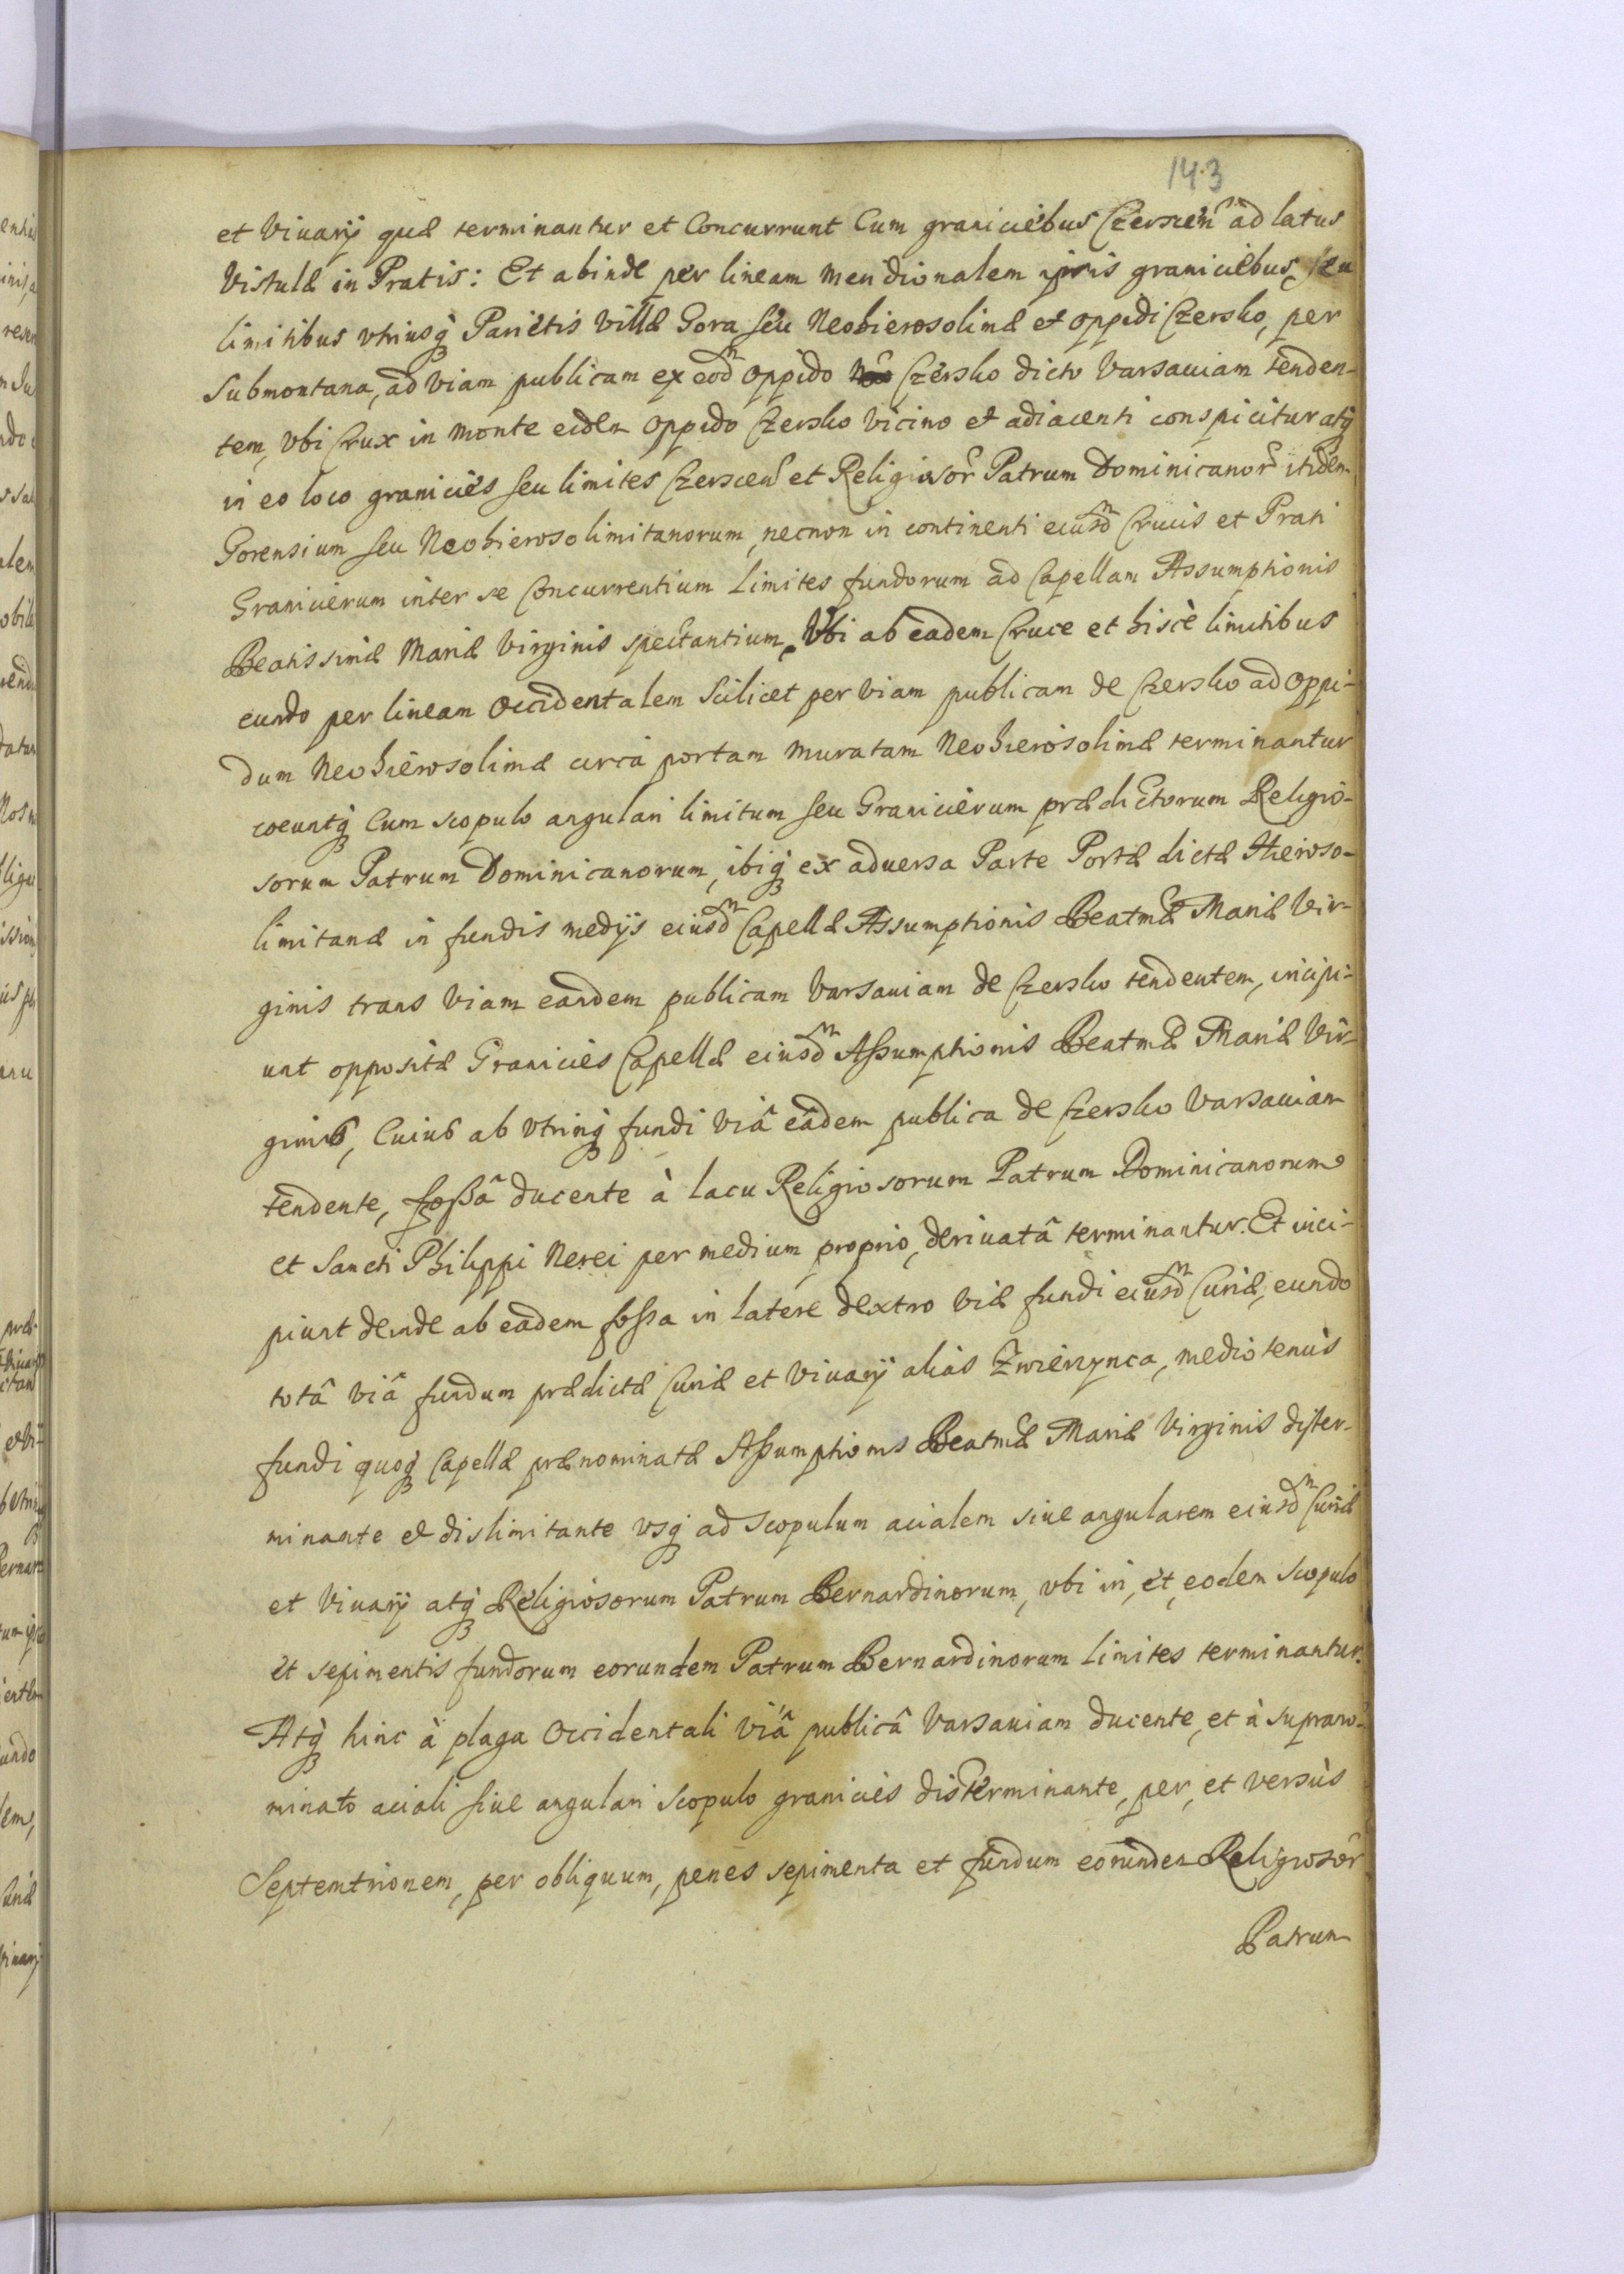 143
et Viuarÿ quæ terminantur et Concurrunt Cum graniciebus Czerscen ad latus
Vistulæ in Pratis: Et abinde per lineam meridionalem ipsis graniciebus, seu
limitibus vtriusq; Parietis Villæ Gora seu Neohierosolimæ et oppidi Czersko, per
Submontana, ad viam publicam ex eodm oppido Czersko dicto Varsauiam tenden-
tem, vbi Crux in monte eidem oppido Czersko vicino et adiacenti conspicitur atq;
in eo loco granicies seu limites Czerscen et Religiosor Patrum Dominicanor itidem
Gorensium seu Neohierosolimitanorum, necnon in continenti eiusdm Crucis et Prati
Granicierum inter se Concurrentium Limites fundorum ad Capellam Assumptionis
Beatissimæ Mariæ Virginis spectantium, Vbi ab eadem Cruce et hiscè limitibus
eundo per lineam Occidentalem Scilicet per viam publicam de Czersko ad Oppi-
dum Neohierosolimæ circa portam muratam Neohierosolimæ terminantur
coeuntq; Cum scopulo angulari limitum seu Granicierum prædictorum Religio-
sorum Patrum Dominicanorum, ibiq; ex aduersa Parte Portæ dictæ Hieroso-
limitanæ in fundis medÿs eiusdm Capellæ Assumptionis Beatmæ Mariæ Vir-
ginis trans Viam eandem publicam Varsauiam de Czersko tendentem, incipi-
unt oppositæ Granicies Capellæ eiusdm Assumptionis Beatmæ Mariæ Vir-
ginis, Cuius ab vtrinq; fundi viâ eâdem publica de Czersko Varsauiam
tendente, fossâ ducente à lacu Religiosorum Patrum Dominicanorum
et Sancti Philippi Nerei per medium, proprio, deriuatâ terminantur. Et inci-
piunt deinde ab eadem fossa in latere dextro viæ fundi eiusdm Curiæ, eundo
totâ viâ fundum prædictæ Curiæ et Viuarÿ aliàs Zwierzynca, medio tenùs
fundi quoq; Capellæ prænominatæ Assumptionis Beatmæ Mariæ Virginis dister-
minante et dislimitante vsq; ad Scopulum acialem siue angularem eiusdm Curiæ
et Viuarÿ atq; Religiosorum Patrum Bernardinorum, vbi in, et, eodem Scopulo
et sepimentis fundorum eorundem Patrum Bernardinorum Limites terminantur.
Atq; hinc à plaga Occidentali viâ publicâ Varsauiam ducente, et à suprano-
minato aciali siue angulari Scopulo granicies disterminante, per, et versùs
Septemtrionem, per obliquum, penes sepimenta et fundum eorundem Religiosor
Patrum